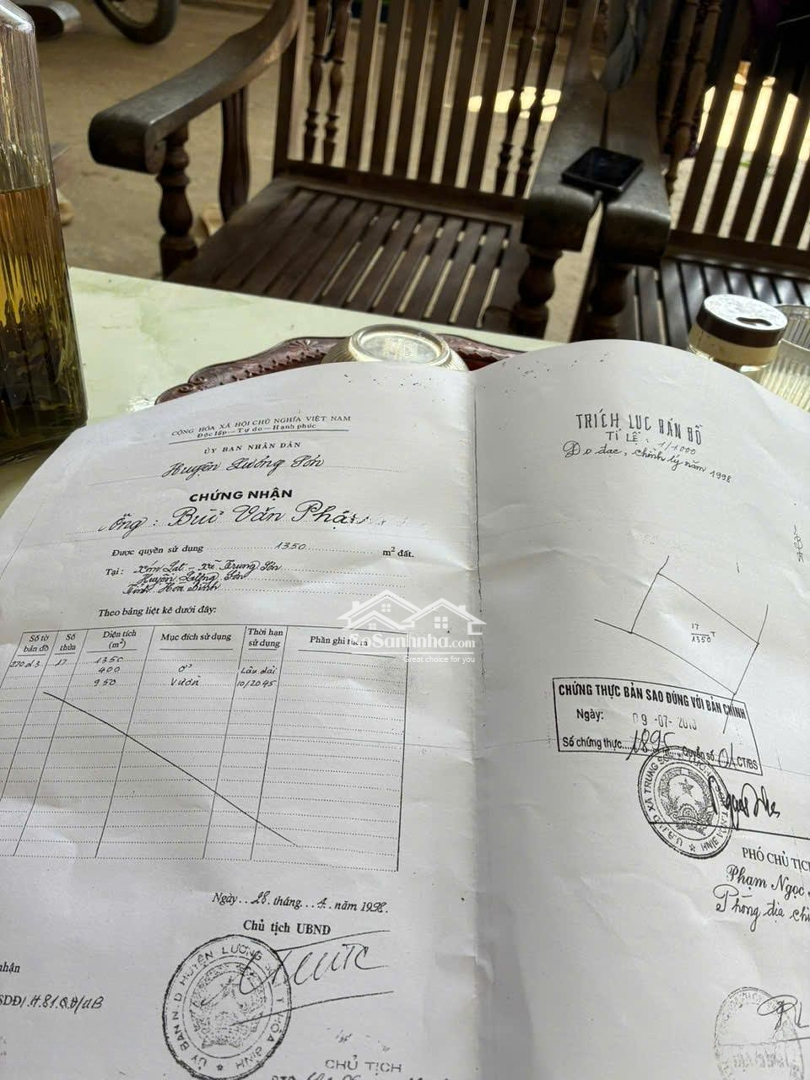 CỘNG HÒA XÃ HỘI CHỦ NGHĨA VIỆT NAM
Độc lập - Tự do - Hạnh phúc
ỦY BAN NHÂN DÂN
Huyện Lương Sơn
CHỨNG NHẬN
Ông: Bùi Văn
Được quyền sử dụng 1350 m² đất.
Tại: Xóm Lat - Xã Trung Sơn
Huyện Lương Sơn
Tỉnh Hòa Bình
Theo bảng liệt kê dưới đây:
Số tờ bản đồ Số thửa Diện tích (m²) Mục đích sử dụng Thời hạn sử dụng Phần ghi
17 1350
400 Ở Lâu dài
950 Vườn 10/2045
Ngày 28 tháng 4 năm 1998
Chủ tịch UBND
ỦY BAN N.D HUYỆN LƯƠNG
CHỦ TỊCH
TRÍCH LỤC BẢN ĐỒ
TỈ LỆ: 1/1000
Đo đạc, chỉnh lý năm 1998
17 T
1350
CHỨNG THỰC BẢN SAO ĐÚNG VỚI BẢN CHÍNH
Ngày: 09-07-
Số chứng thực 1895 Quyển số 01 CT/BS
U.B.N.D XÃ TRUNG
PHÓ CHỦ TỊCH
Phạm Ngọc
Phòng địa
SoSanhnha.com
Great choice for you